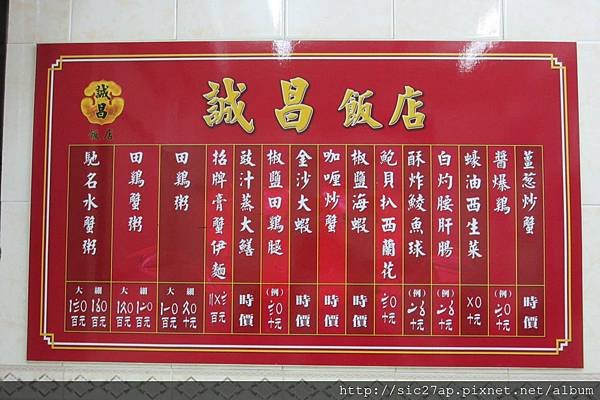 誠昌飯店
誠昌
飯店
薑葱炒蟹
時價
醬爆鷄
(例)
十元
蠔油西生菜
十元
白灼腰肝腸
(例)
十元
酥炸鮫魚球
(例)
十元
鮑貝扒西蘭花
十元
椒鹽海蝦
時價
咖喱炒蟹
時價
金沙大蝦
時價
椒鹽田鷄腿
(例)
十元
豉汁蒸大鱔
時價
招牌膏蟹伊麵
百元
田鷄粥
細
十元
大
百元
田鷄蟹粥
細
百元
大
百元
馳名水蟹粥
細
百元
大
百元
http://sic27ap.pixnet.net/album